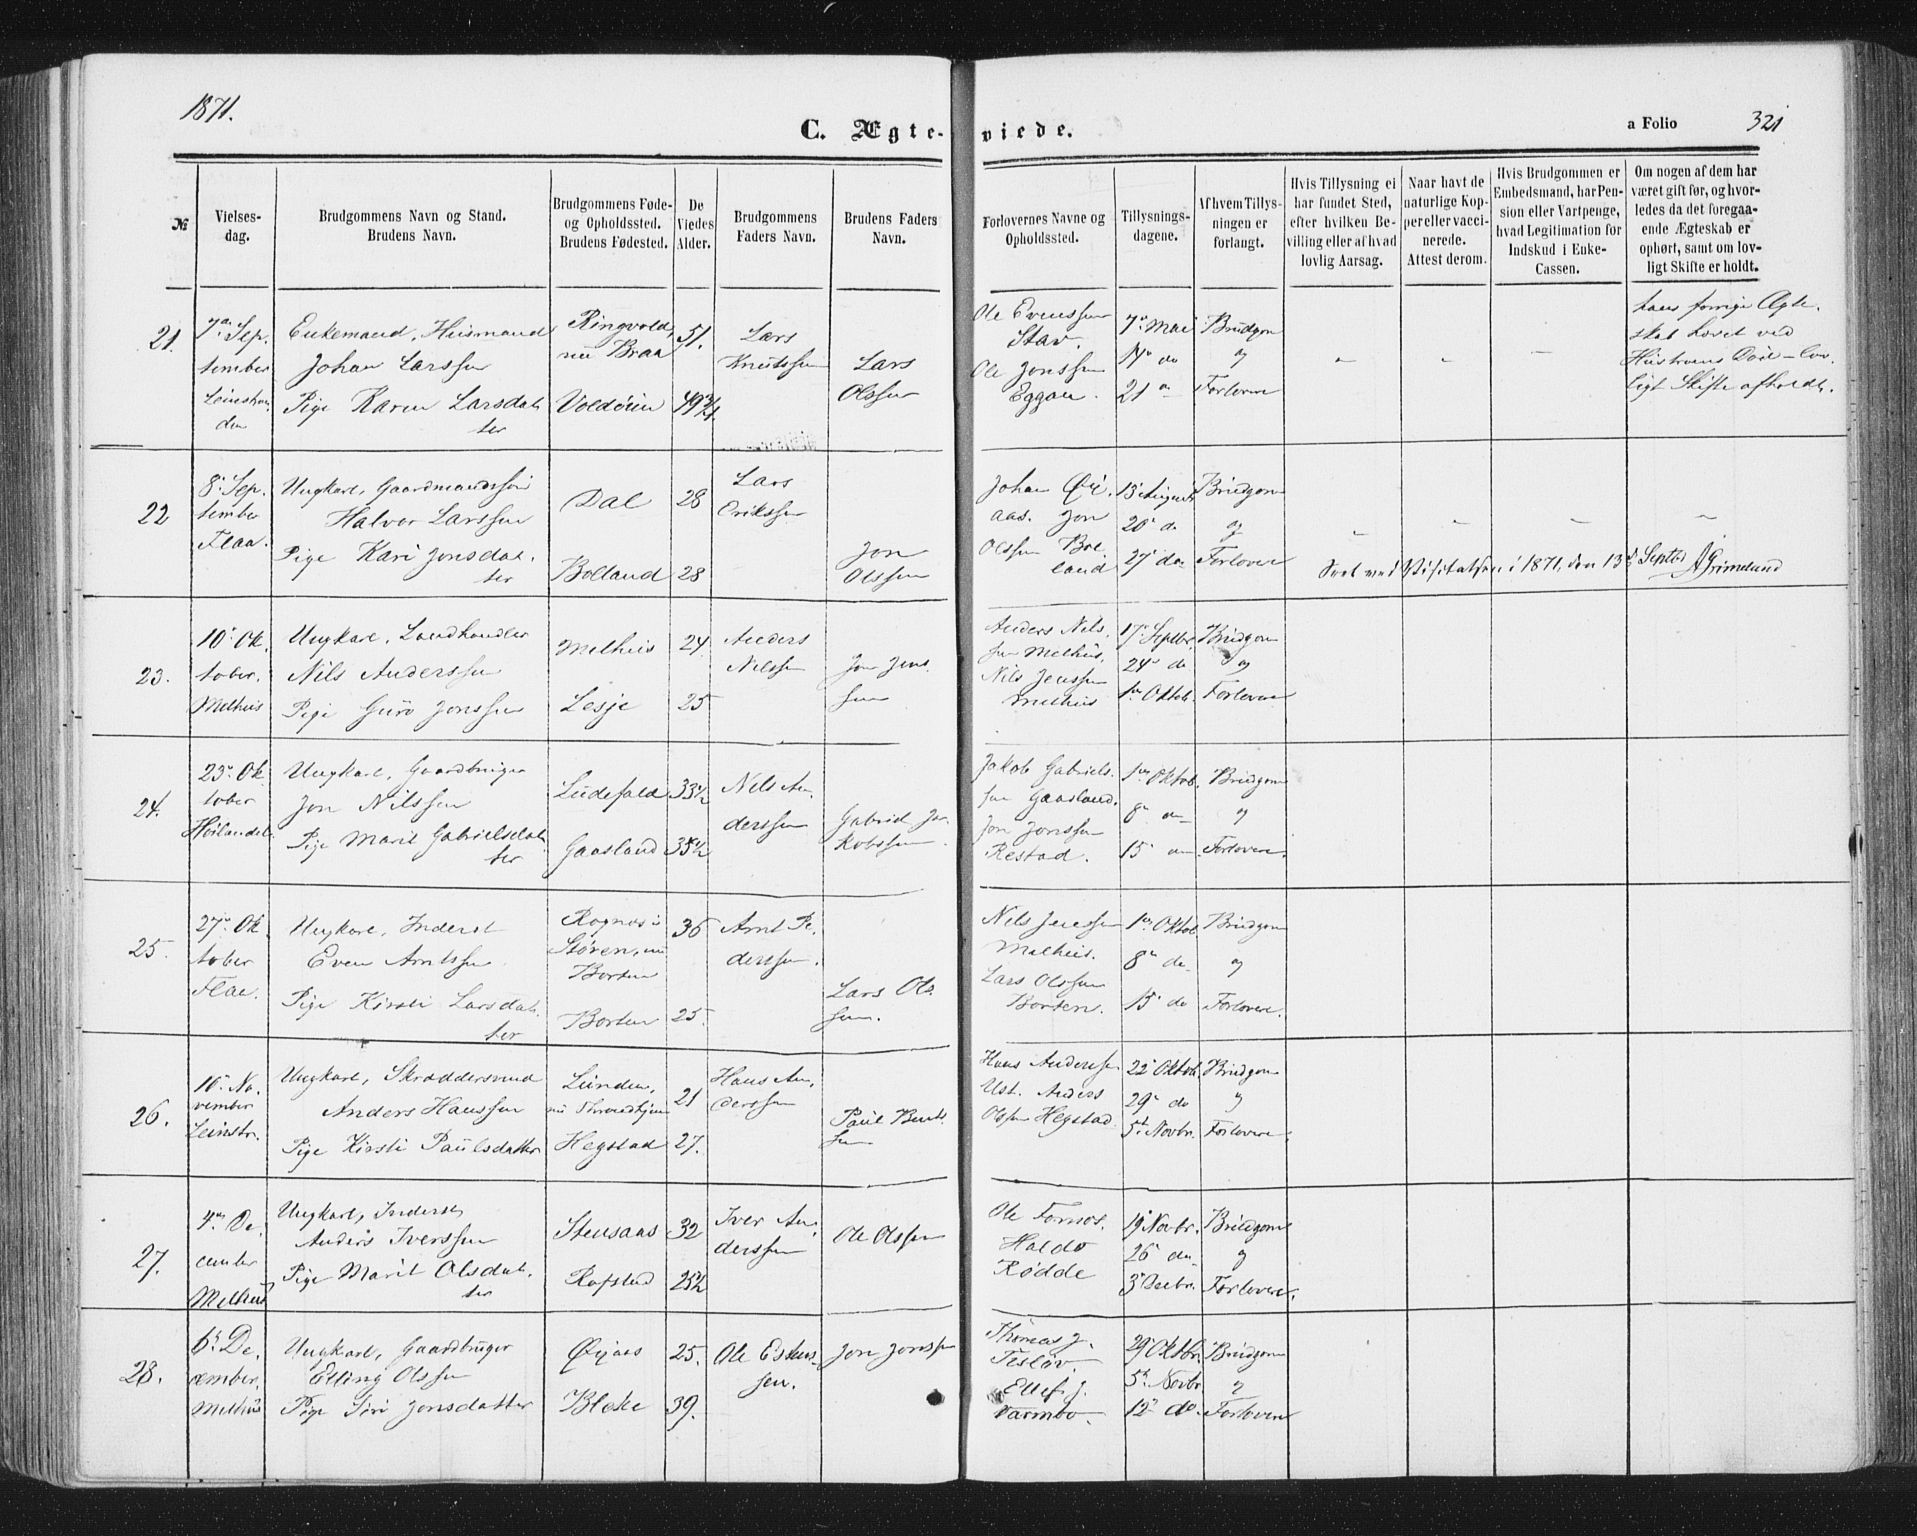 1871.
C. Ægte-
viede.
a Folio
321
№
Vielses-
dag.
Brudgommens Navn og Stand.
Brudens Navn.
Brudgommens Føde-
og Opholdssted.
Brudens Fødested.
De
Viedes
Alder.
Brudgommens
Faders Navn.
Brudens Faders
Navn.
Forlovernes Navne og
Opholdssted.
Tillysnings-
dagene.
Af hvem Tillys-
ningen er
forlangt.
Hvis Tillysning ei
har fundet Sted,
efter hvilken Be-
villing eller af hvad
lovlig Aarsag.
Naar havt de
naturlige Kop-
per eller vacci-
nerede.
Attest derom.
Hvis Brudgommen er
Embedsmand, har Pen-
sion eller Vartpenge,
hvad Legitimation for
Indskud i Enke-
Cassen.
Om nogen af dem har
været gift før, og hvor-
ledes da det foregaa-
ende Ægteskab er
ophørt, samt om lov-
ligt Skifte er holdt.
21.
Sep.
tember
Enkemand, Huusmand
Johan Larssen
Pige Karen Larsdat
ter
Ringvold,
nu Braa
Voldøien
51.
49¾
Lars
Knutssen
Lars
Olssen
Ole Evenssen
Stav.
Ole Jonssen
Eggen.
7de Mai
14de do
21 do
Brudgom
og
Forlovere
hans forrige Ægte
skab hævet ved
Hustruens Død - lov
ligt Skifte afholdt.
22
8de Sep.
tember
Flaa.
Ungkarl, Gaardmandssøn
Halvor Larssen
Pige Kari Jonsdat.
ter
Dal
Bolland
28
28
Lars
Erikssen
Jon
Olssen
Johan Øi
aas. Jon
Olssen Bol
land
13 August
20 do
27 do
Brudgom
og
Forlovere
Seet ved Visitatsen i 1871, den 13de Septbr Grimelund
23.
10de Ok
tober.
Melhus
Ungkarl, Landhandler
Nils Anderssen
Pige Guro Jonssen
Melhus
Lesje
24.
25
Anders
Nilssen
Jon Jons
sen
Anders Nils.
sen Melhus.
Nils Jenssen
Melhus
17de Septbr.
24de do
1ste Oktob.
Brudgom
og
Forlovere
24.
23de Ok
tober
Høilandet
Ungkarl, Gaardbruger
Jon Nilssen
Pige Marit Gabrielsdat
ter
Ludefald
Gaasland
33½
35½
Nils An.
derssen
Gabriel Ja
kobssen
Jakob Gabriels.
sen Gaasland.
Jon Jonssen
Restad.
1ste Oktob.
8de do
15 do
Brudgom
og
Forlovere.
25.
27de Ok
tober
Flaa.
Ungkarl, Inderst
Even Arntssen
Pige Kirsti Larsdat.
ter
Rognæs i
Støren, nu
Borten
Borten
36
25.
Arnt Pe.
derssen.
Lars Ols
sen.
Nils Jenssen
Melhus.
Lars Olssen
Borten.
1ste Oktob
8de do
15 do
Brudgom
og
Forlovere.
26.
10de No.
vember
Leinstr.
Ungkarl, Skræddersvend
Anders Hanssen
Pige Kirsti Paulsdatter
Lunden,
nu Throndhjem
Hegstad
21
27.
Hans An.
derssen
Paul Bent
sen
Hans Anderssen
Ust. Anders
Olssen Hegstad
22 Oktob.
29de do
5te Novbr.
Brudgom
og
Forlovere.
27.
4de De
cember
Melhus
Ungkarl, Inderst
Anders Iverssen
Pige Marit Olsdat.
ter
Stensaas
Rofstad
32
25½
Iver An
derssen
Ole Olssen
Ole Fornes.
Haldo
Rødde
19 Novbr.
26 do
3 Decbr.
Brudgom
og
Forlovere.
28.
6te De.
cember.
Melhus
Ungkarl, Gaardbruger
Elling Olssen
Pige Siri Jonsdatter
Øiaas
Bleke
25.
39.
Ole Estens-
sen.
Jon Jonssen
Thomas J.
Teslöv.
Ellef J.
Varmbo.
29 Oktbr.
5te Novbr
12te do.
Brudgom
og
Forlovere